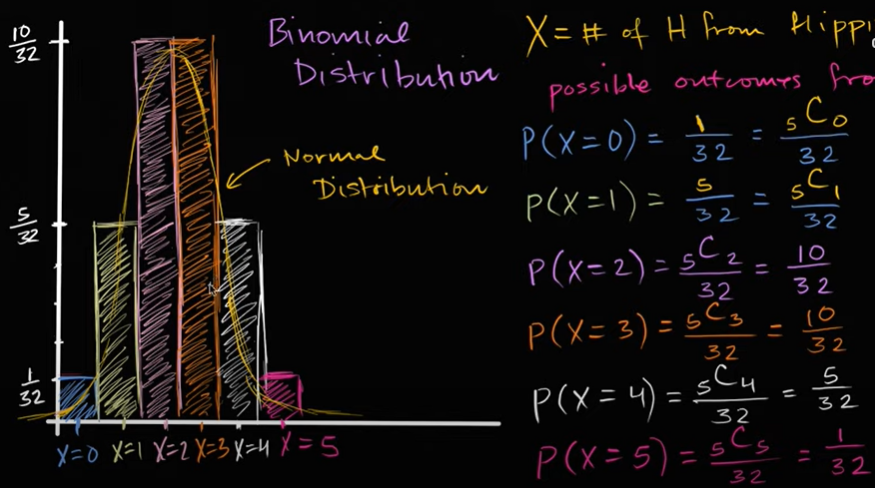 Binomial
Distribution
Normal
Distribution
10/32
5/32
1/32
X=0 X=1 X=2 X=3 X=4 X=5
X = # of H from flippi
possible outcomes fro
P(X=0) = 1/32 = ₅C₀/32
P(X=1) = 5/32 = ₅C₁/32
P(X=2) = ₅C₂/32 = 10/32
P(X=3) = ₅C₃/32 = 10/32
P(X=4) = ₅C₄/32 = 5/32
P(X=5) = ₅C₅/32 = 1/32